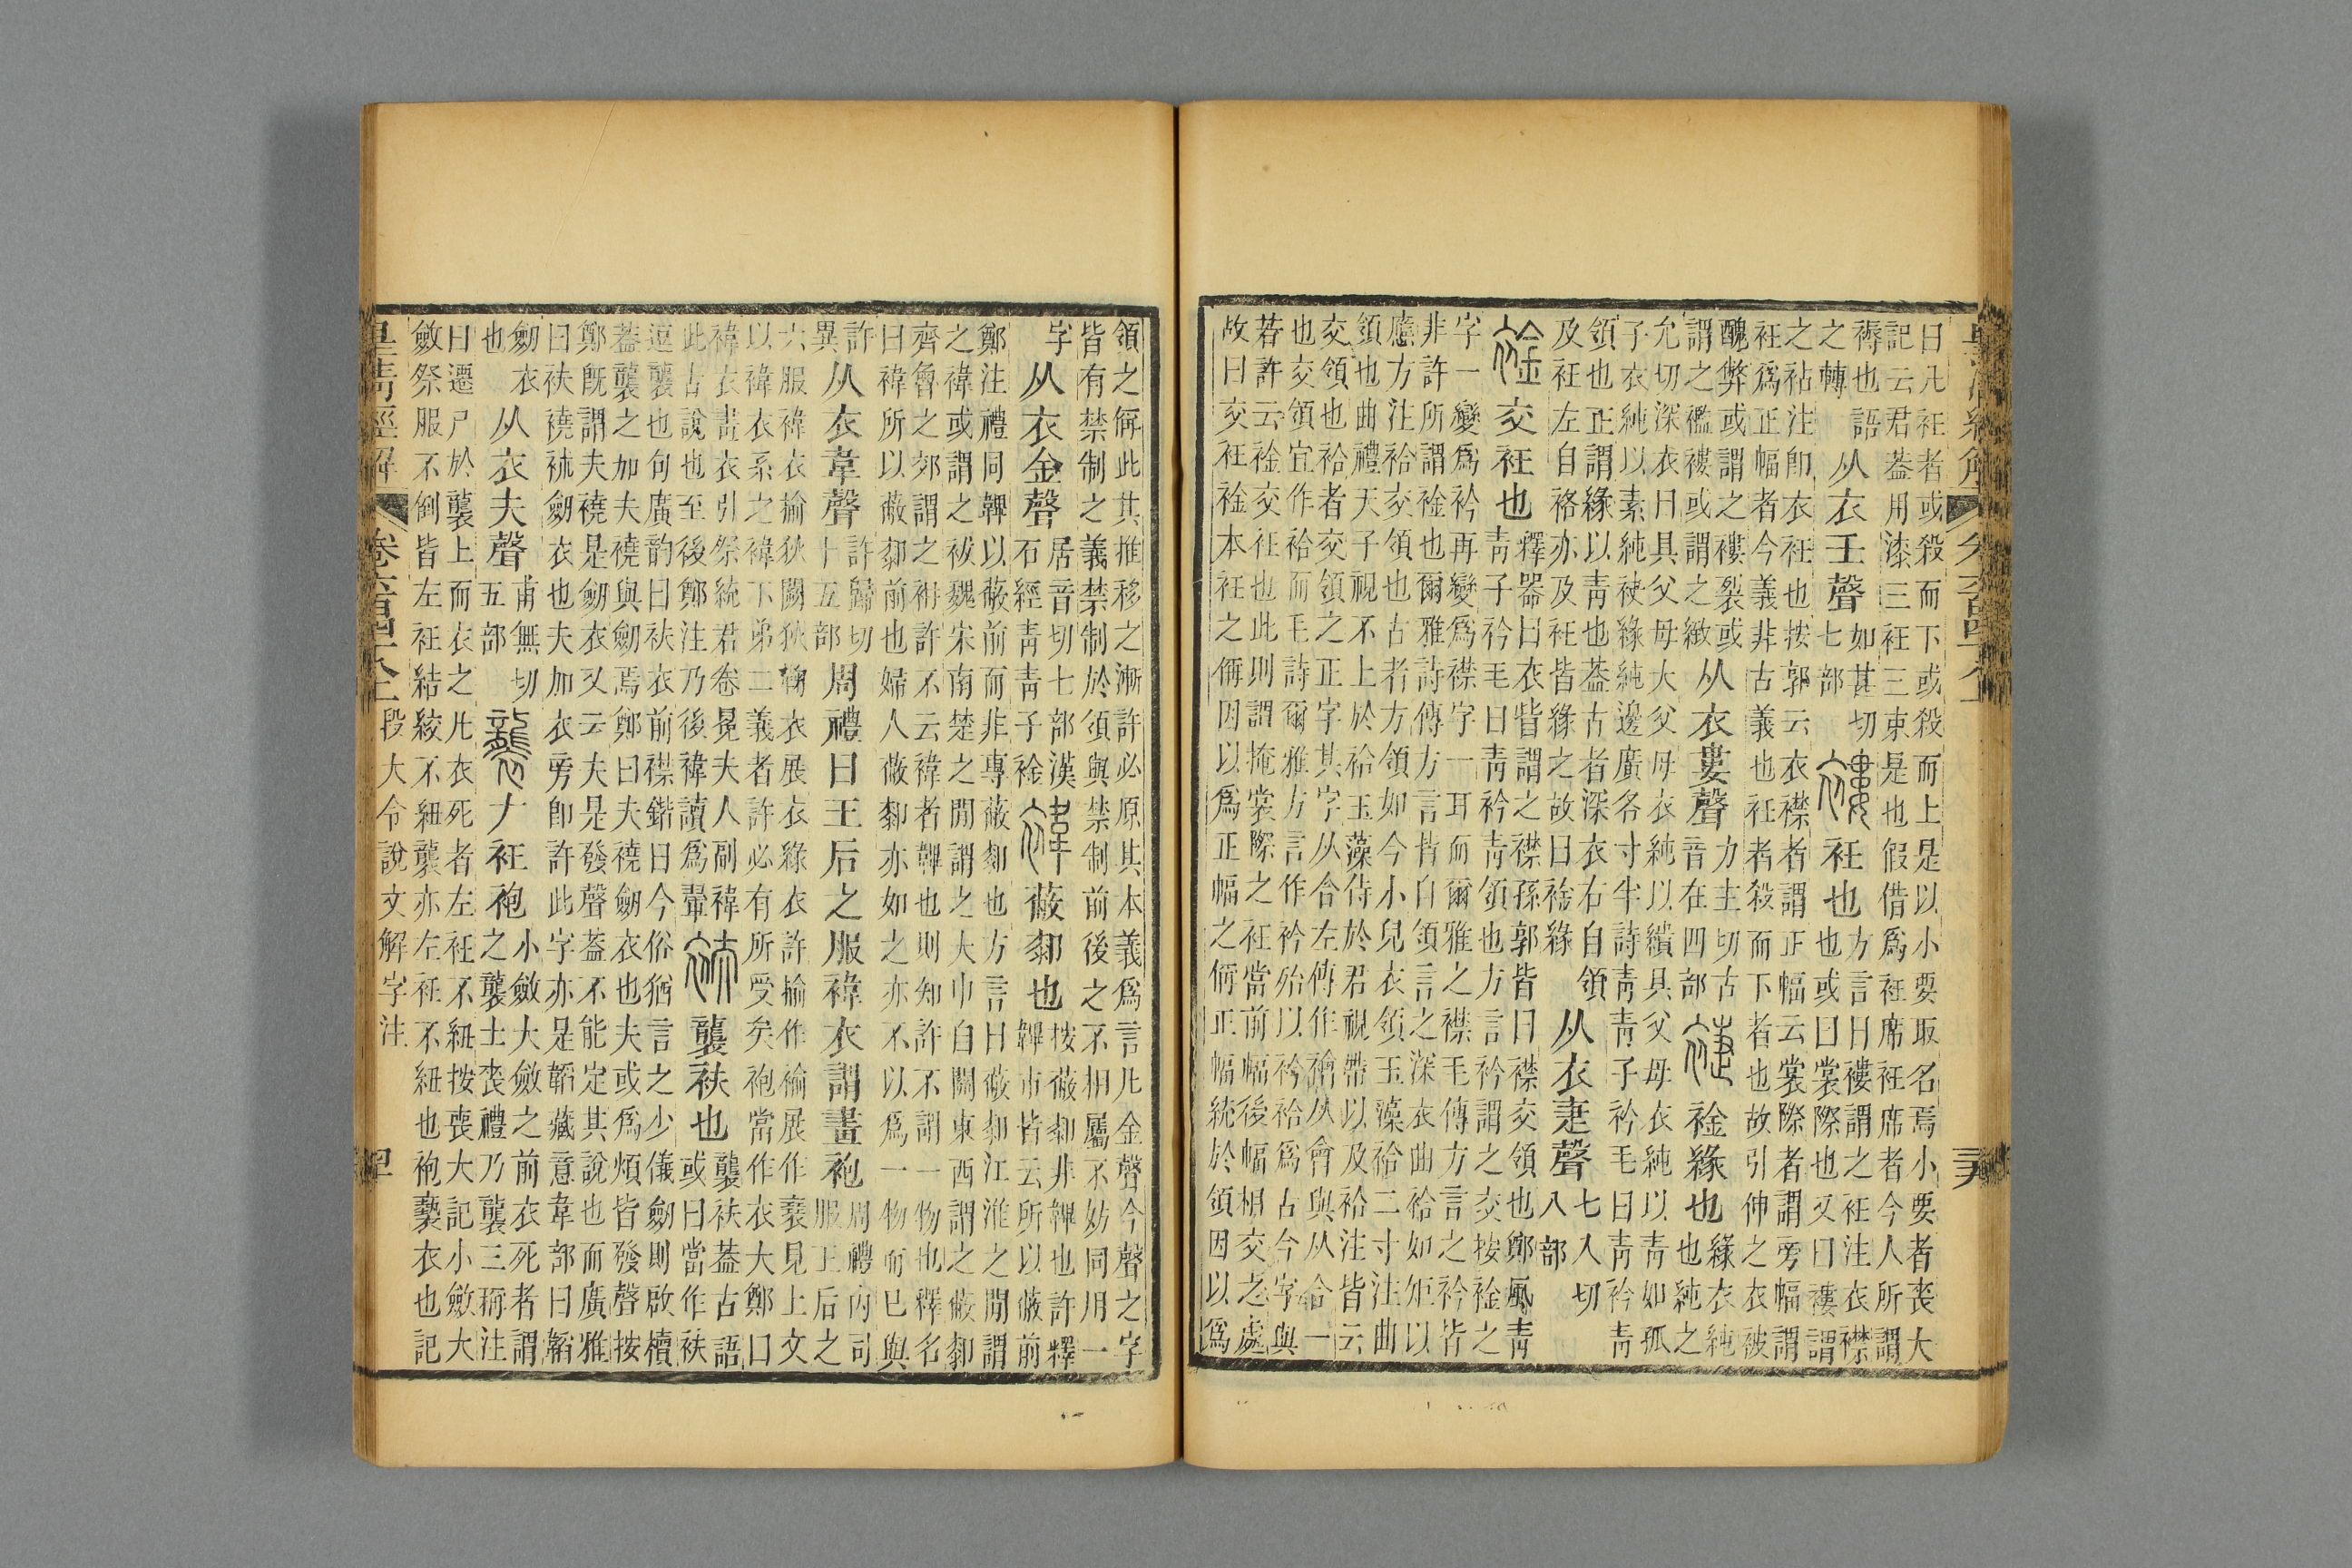 曰凡衽者或殺而下或殺而上是以小要取名焉小要者喪大
記云君葢用漆三衽三束是也假借爲衽席衽席者今人所謂
褥也語
之轉
从衣壬聲
如甚切
七部
褸
衽也
方言曰褸謂之衽注衣襟
也或曰裳際也又曰褸謂
之袩注卽衣衽也按郭云衣襟者謂正幅云裳際者謂旁幅謂
衽爲正幅者今義非古義也衽者殺而下者也故引伸之衣被
醜弊或謂之褸裂或
謂之襤褸或謂之緻
从衣婁聲
力主切古
音在四部
䘹
䘳緣也
緣衣純
也純之
允切深衣曰具父母大父母衣純以繢具父母衣純以靑如孤
子衣純以素純袂緣純邊廣各寸半詩靑靑子衿毛曰靑衿靑
領也正謂緣以靑也葢古者深衣右自領
及衽左自袼亦及衽皆緣之故曰䘳緣
从衣疌聲
七入切
八部
䘳
交衽也
釋器曰衣眥謂之襟孫郭皆曰襟交領也鄭風靑
靑子衿毛曰靑衿靑領也方言衿謂之交按䘳之
字一變爲衿再變爲襟字一耳而爾雅之襟毛傳方言之衿皆
非許所謂䘳也爾雅詩傳方言皆自領言之深衣曲袷如矩以
應方注袷交領也古者方領如今小兒衣領玉藻袷二寸注曲
領也曲禮天子視不上於袷玉藻侍於君視帶以及袷注皆云
交領也袷者交領之正字其字从合左傳作襘从會與从合一
也交領宜作袷而毛詩爾雅方言作衿殆以衿袷爲古今字與
若許云䘳交衽也此則謂掩裳際之衽當前幅後幅相交之處
故曰交衽䘳本衽之偁因以爲正幅之偁正幅統於領因以爲
領之偁此其推移之漸許必原其本義爲言凡金聲今聲之字
皆有禁制之義禁制於須與禁制前後之不相屬不妨同用一
字
从衣金聲
居音切七部漢
石經靑靑子䘳
褘
蔽厀也
按蔽厀非韠也許釋
韠巿皆云所以蔽前
鄭注禮同韠以蔽前而非專蔽厀也方言曰蔽厀江淮之閒謂
之褘或謂之祓魏宋南楚之閒謂之大巾自關東西謂之蔽厀
齊魯之郊謂之衻許不云褘者韠也則知許不謂一物也釋名
曰褘所以蔽厀前也婦人蔽厀亦如之亦不以爲一物而已與
許
異
从衣韋聲
許歸切
十五部
周禮曰王后之服褘衣謂畫袍
周禮內司
服王后之
六服褘衣揄狄闕狄鞠衣展衣緣衣許揄作褕展作𧝑見上文
以褘衣系之褘下弟二義者許必有所受矣袍當作衣大鄭曰
褘衣畫衣引祭統君卷冕夫人副褘
此古說也至後鄭注乃後褘讀爲翬
衭
襲衭也
襲衭葢古語
或曰當作衭
逗襲也句廣韵曰衭衣前襟鍇曰今俗猶言之少儀劒則啟櫝
葢襲之加夫襓與劒焉鄭曰夫襓劒衣也夫或爲煩皆發聲按
鄭旣謂夫襓是劒衣又云夫是發聲葢不能定其說也而廣雅
曰衭襓袾劒衣也夫加衣旁卽許此字亦是韜藏意韋部曰韜
劒衣
也
从衣夫聲
甫無切
五部
襲
𠂇衽袍
小斂大斂之前衣死者謂
之襲士喪禮乃襲三稱注
曰遷尸於襲上而衣之凡衣死者左衽不紐按喪大記小斂大
斂祭服不倒皆左衽結絞不紐襲亦左衽不紐也袍褻衣也記
皇清經解 卷六百四十八上 段大令說文解字注